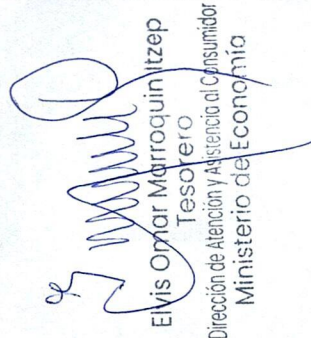 Elvis Omar Marroquin Itzep
Tesorero
Dirección de Atención y Asistencia al Consumidor
Ministerio de Economía